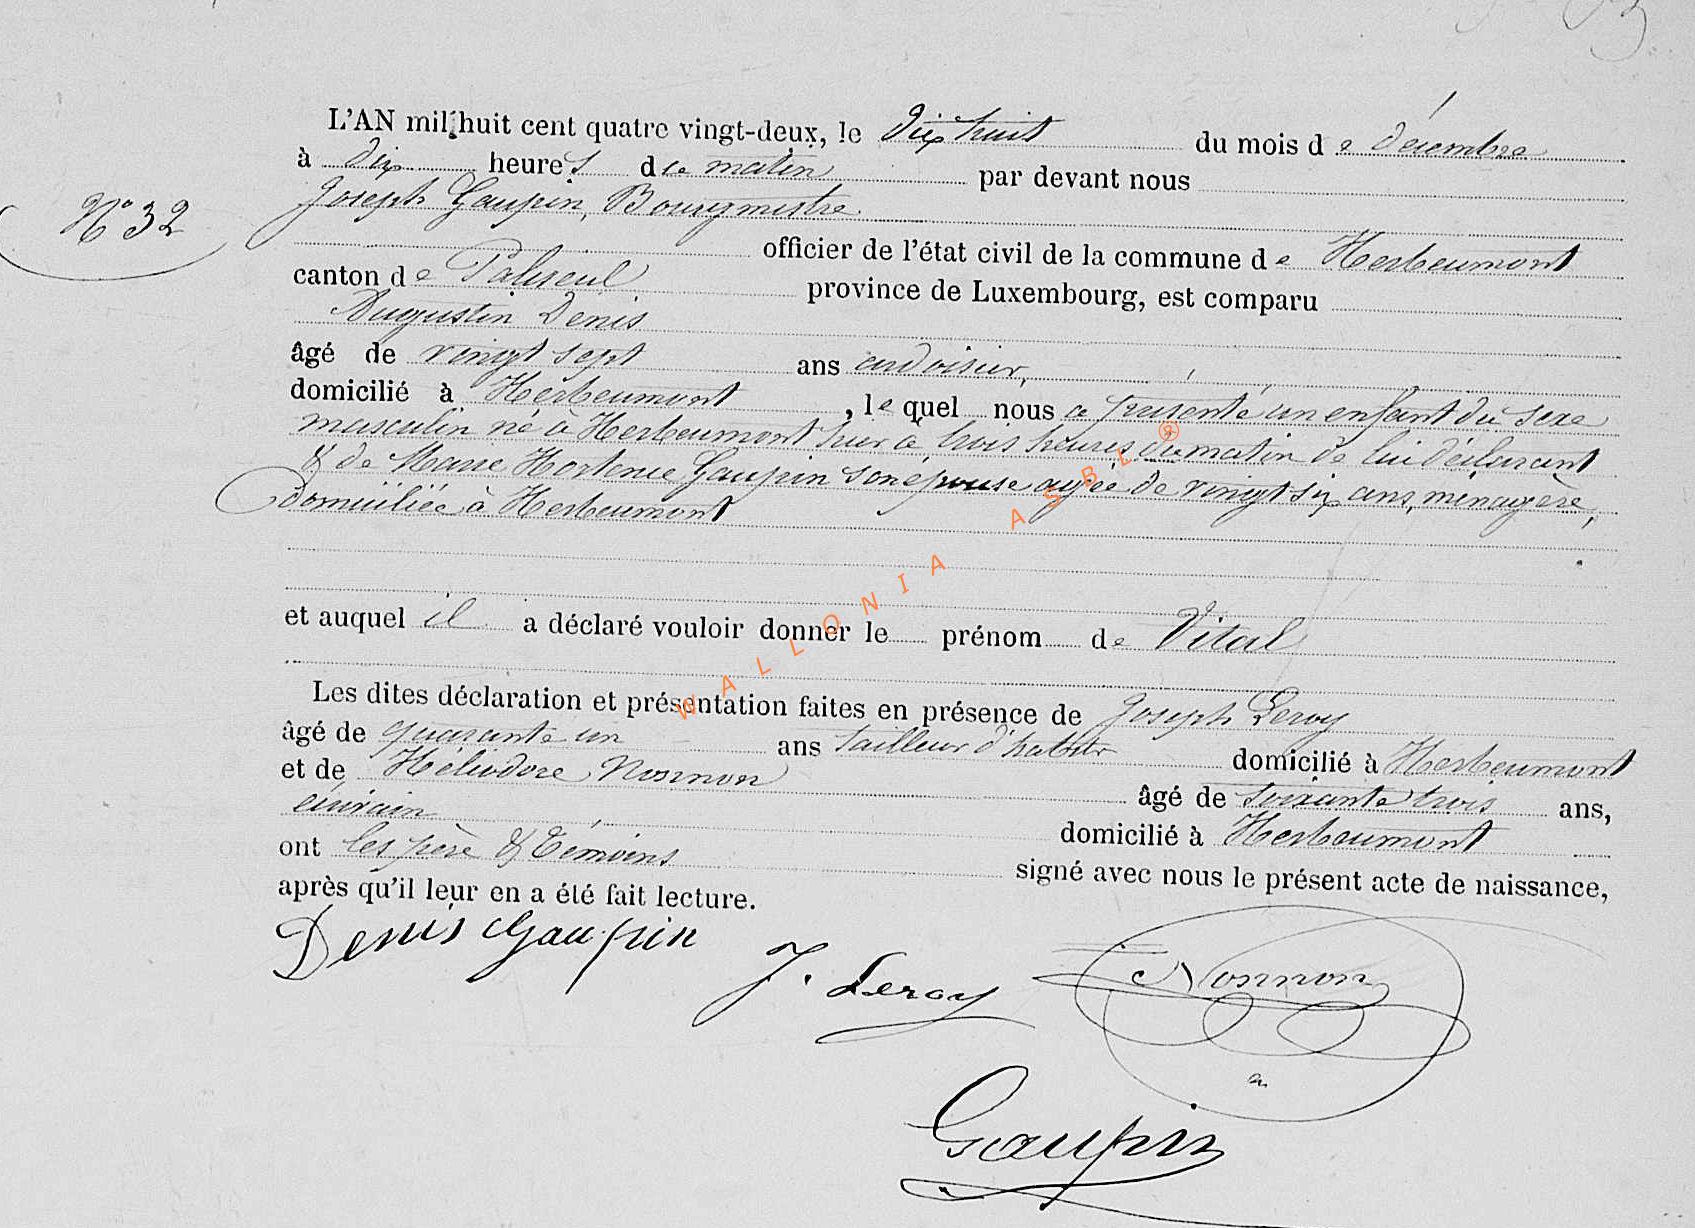 N° 32
L'AN mil huit cent quatre vingt-deux, le dix huit du mois de décembre
à dix heures du matin par devant nous
Joseph Gaupin, Bourgmestre
officier de l'état civil de la commune de Herbeumont
canton de Paliseul province de Luxembourg, est comparu
Augustin Denis
âgé de vingt sept ans ardoisier,
domicilié à Herbeumont, lequel nous a présenté un enfant du sexe
masculin né à Herbeumont hier à trois heures du matin de lui déclarant
& de Marie Hortense Gaupin son épouse agée de vingt six ans, ménagère,
domiciliée à Herbeumont
et auquel il a déclaré vouloir donner le prénom de Vital
Les dites déclaration et présentation faites en présence de Joseph Leroy
âgé de quarante un ans tailleur d'habits domicilié à Herbeumont
et de Héliodore Nonnon âgé de soixante trois ans,
écrivain domicilié à Herbeumont
ont les père & témoins signé avec nous le présent acte de naissance,
après qu'il leur en a été fait lecture.
Denis Gaupin
J. Leroy
Nonnon
Gaupin
WALLONIA ASBL ®